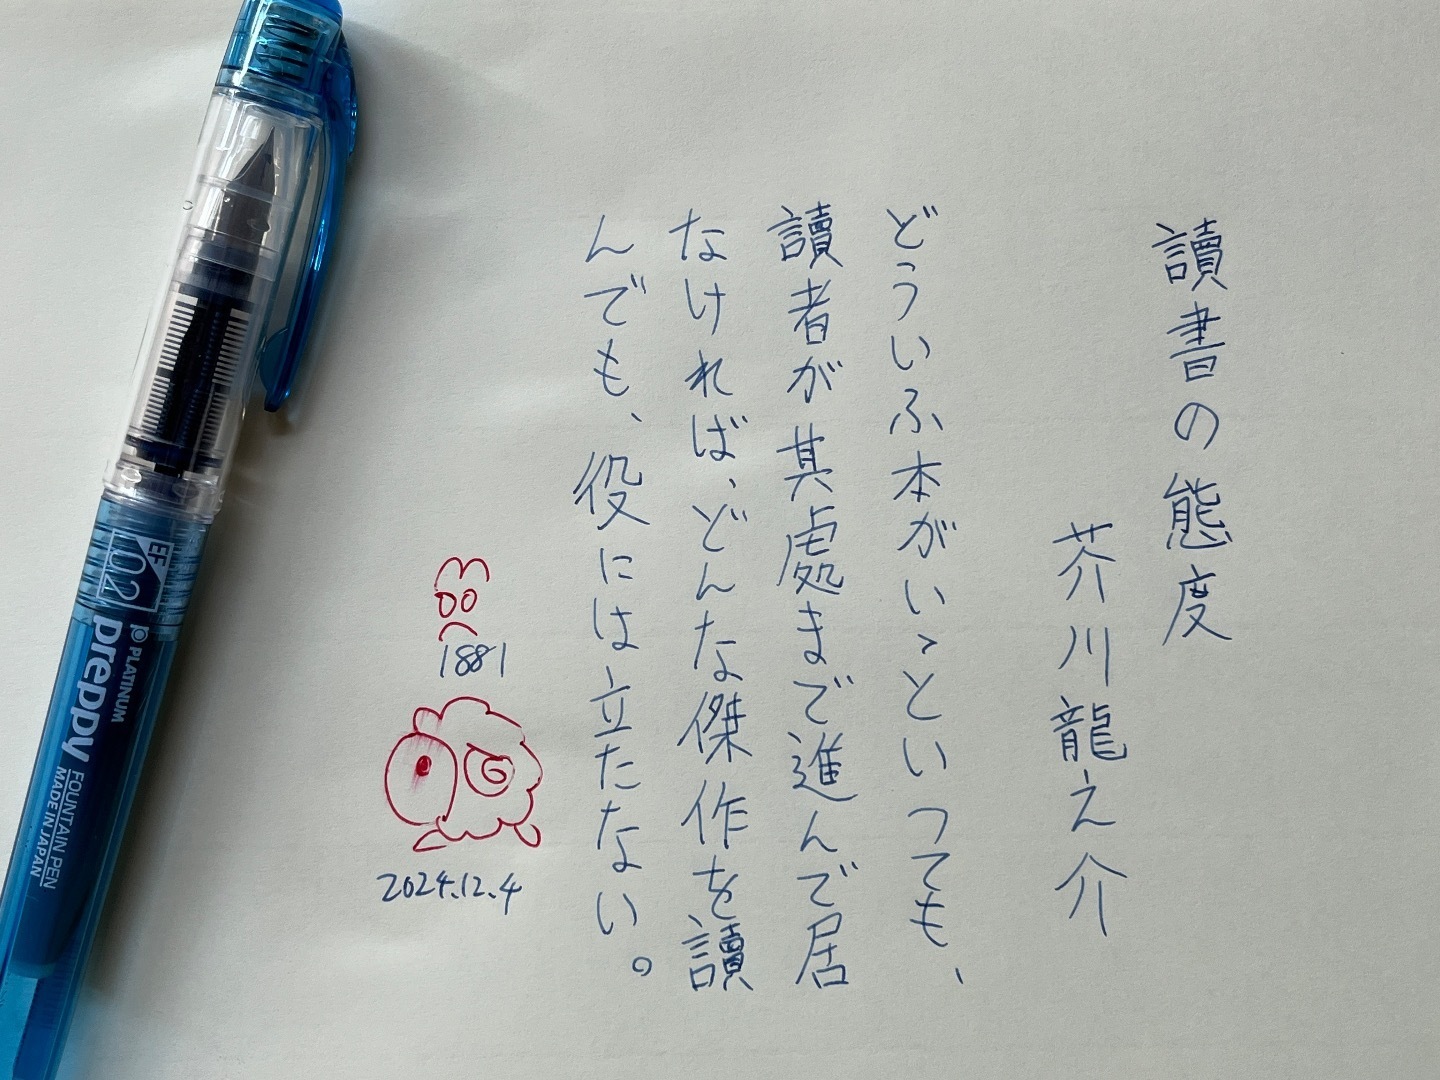 讀書の態度
芥川龍之介
どういふ本がいゝといつても、
讀者が其處まで進んで居
なければ、どんな傑作を讀
んでも、役には立たない。
1881
2024.12.4
EF 02
PLATINUM
preppy
FOUNTAIN PEN
MADE IN JAPAN